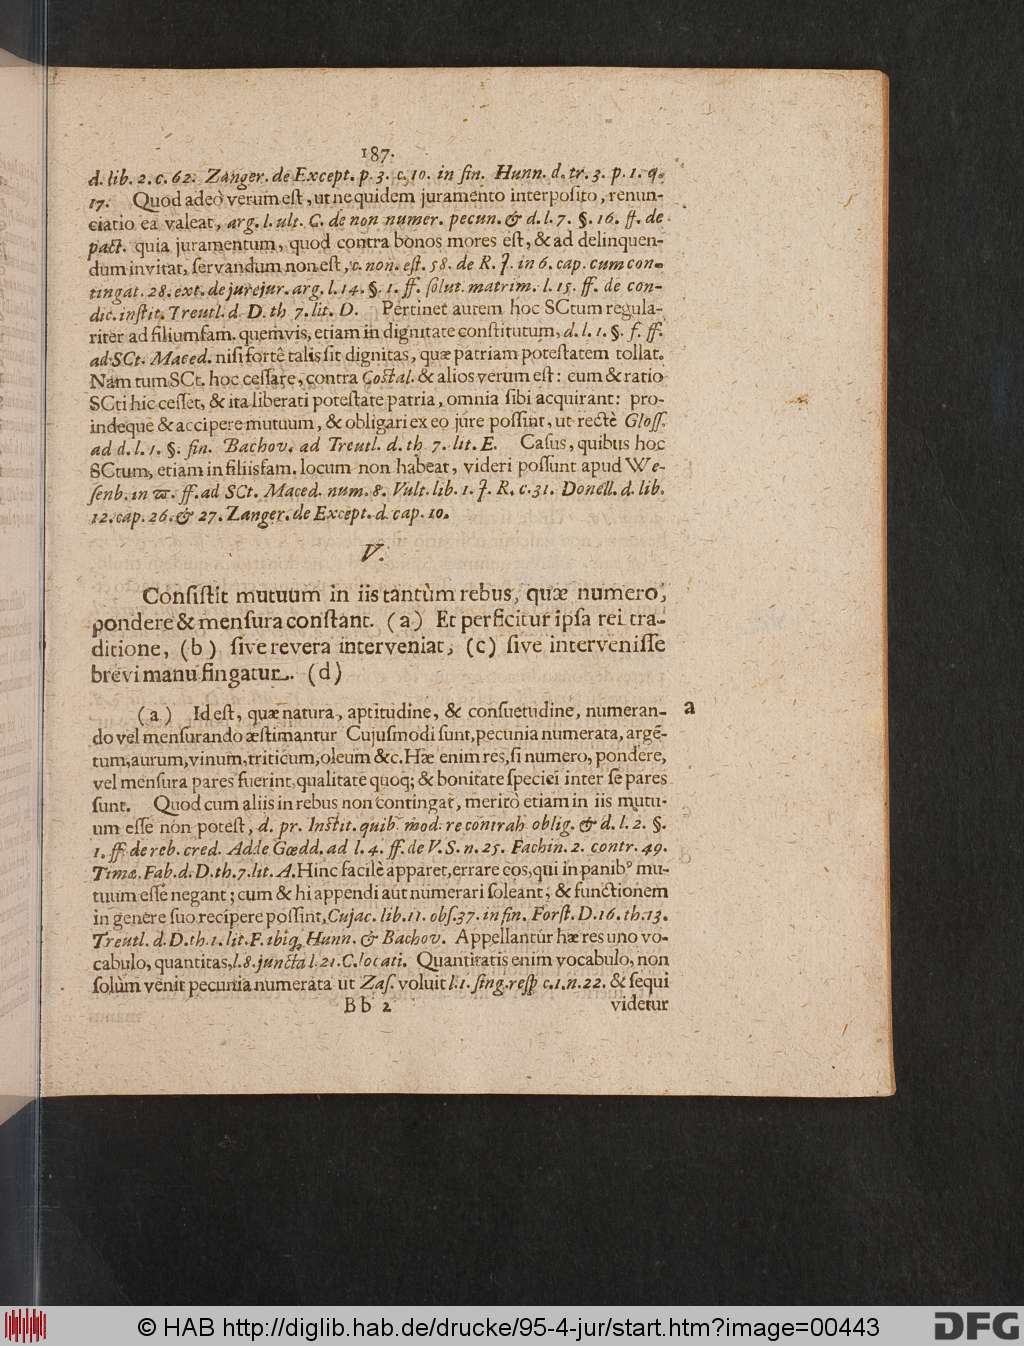 187.
d. lib. 2. c. 62. Zanger. de Except. p. 3. c. 10. in fin. Hunn. d. tr. 3. p. 1. q.
17. Quod adeò verum est, ut ne quidem juramento interposito, renun-
ciatio ea valeat, arg. l. ult. C. de non numer. pecun. & d. l. 7. §. 16. ff. de
pact. quia juramentum, quod contra bonos mores est, & ad delinquen-
dum invitat, servandum non est, c. non. est. 58. de R. J. in 6. cap. cum con-
tingat. 28. ext. de jurejur. arg. l. 14. §. 1. ff. solut. matrim. l. 15. ff. de con-
dic. instit. Treutl. d. D. th 7. lit. D. Pertinet autem hoc SCtum regula-
riter ad filiumfam. quemvis, etiam in dignitate constitutum, d. l. 1. §. f. ff.
ad SCt. Maced. nisi fortè talis sit dignitas, quæ patriam potestatem tollat.
Nam tum SCt. hoc cessare, contra Costal. & alios verum est: cum & ratio
SCti hic cesset, & ita liberati potestate patria, omnia sibi acquirant: pro-
indeque & accipere mutuum, & obligari ex eo jure possint, ut rectè Gloss.
ad d. l. 1. §. fin. Bachov. ad Treutl. d. th 7. lit. E. Casus, quibus hoc
SCtum, etiam in filiisfam. locum non habeat, videri possunt apud We-
senb. in ϖ. ff. ad SCt. Maced. num. 8. Vult. lib. 1. J. R. c. 31. Donell. d. lib.
12. cap. 26. & 27. Zanger. de Except. d. cap. 10.
V.
Consistit mutuum in iis tantùm rebus, quæ numero,
pondere & mensura constant. (a) Et perficitur ipsa rei tra-
ditione, (b) sive revera interveniat, (c) sive intervenisse
brevi manu fingatur. (d)
(a) Id est, quæ natura, aptitudine, & consuetudine, numeran- a
do vel mensurando æstimantur Cujusmodi sunt, pecunia numerata, argē-
tum, aurum, vinum, triticum, oleum &c. Hæ enim res, si numero, pondere,
vel mensura pares fuerint, qualitate quoq; & bonitate speciei inter se pares
sunt. Quod cum aliis in rebus non contingat, meritò etiam in iis mutu-
um esse non potest, d. pr. Instit. quib. mod. re contrah oblig. & d. l. 2. §.
1. ff. de reb. cred. Adde Gœdd. ad l. 4. ff. de V. S. n. 25. Fachin. 2. contr. 49.
Timæ. Fab. d. D. th. 7. lit. A. Hinc facilè apparet, errare eos, qui in panib⁹ mu-
tuum esse negant; cum & hi appendi aut numerari soleant, & functionem
in genere suo recipere possint, Cujac. lib. 11. obs. 37. in fin. Forst. D. 16. th. 13.
Treutl. d. D. th. 1. lit. F. ibiq; Hunn. & Bachov. Appellantur hæ res uno vo-
cabulo, quantitas, l. 8. juncta l. 21. C. locati. Quantitatis enim vocabulo, non
solùm venit pecunia numerata ut Zas. voluit l. 1. sing. resp c. 1. n. 22. & sequi
Bb 2 videtur
© HAB http://diglib.hab.de/drucke/95-4-jur/start.htm?image=00443
DFG